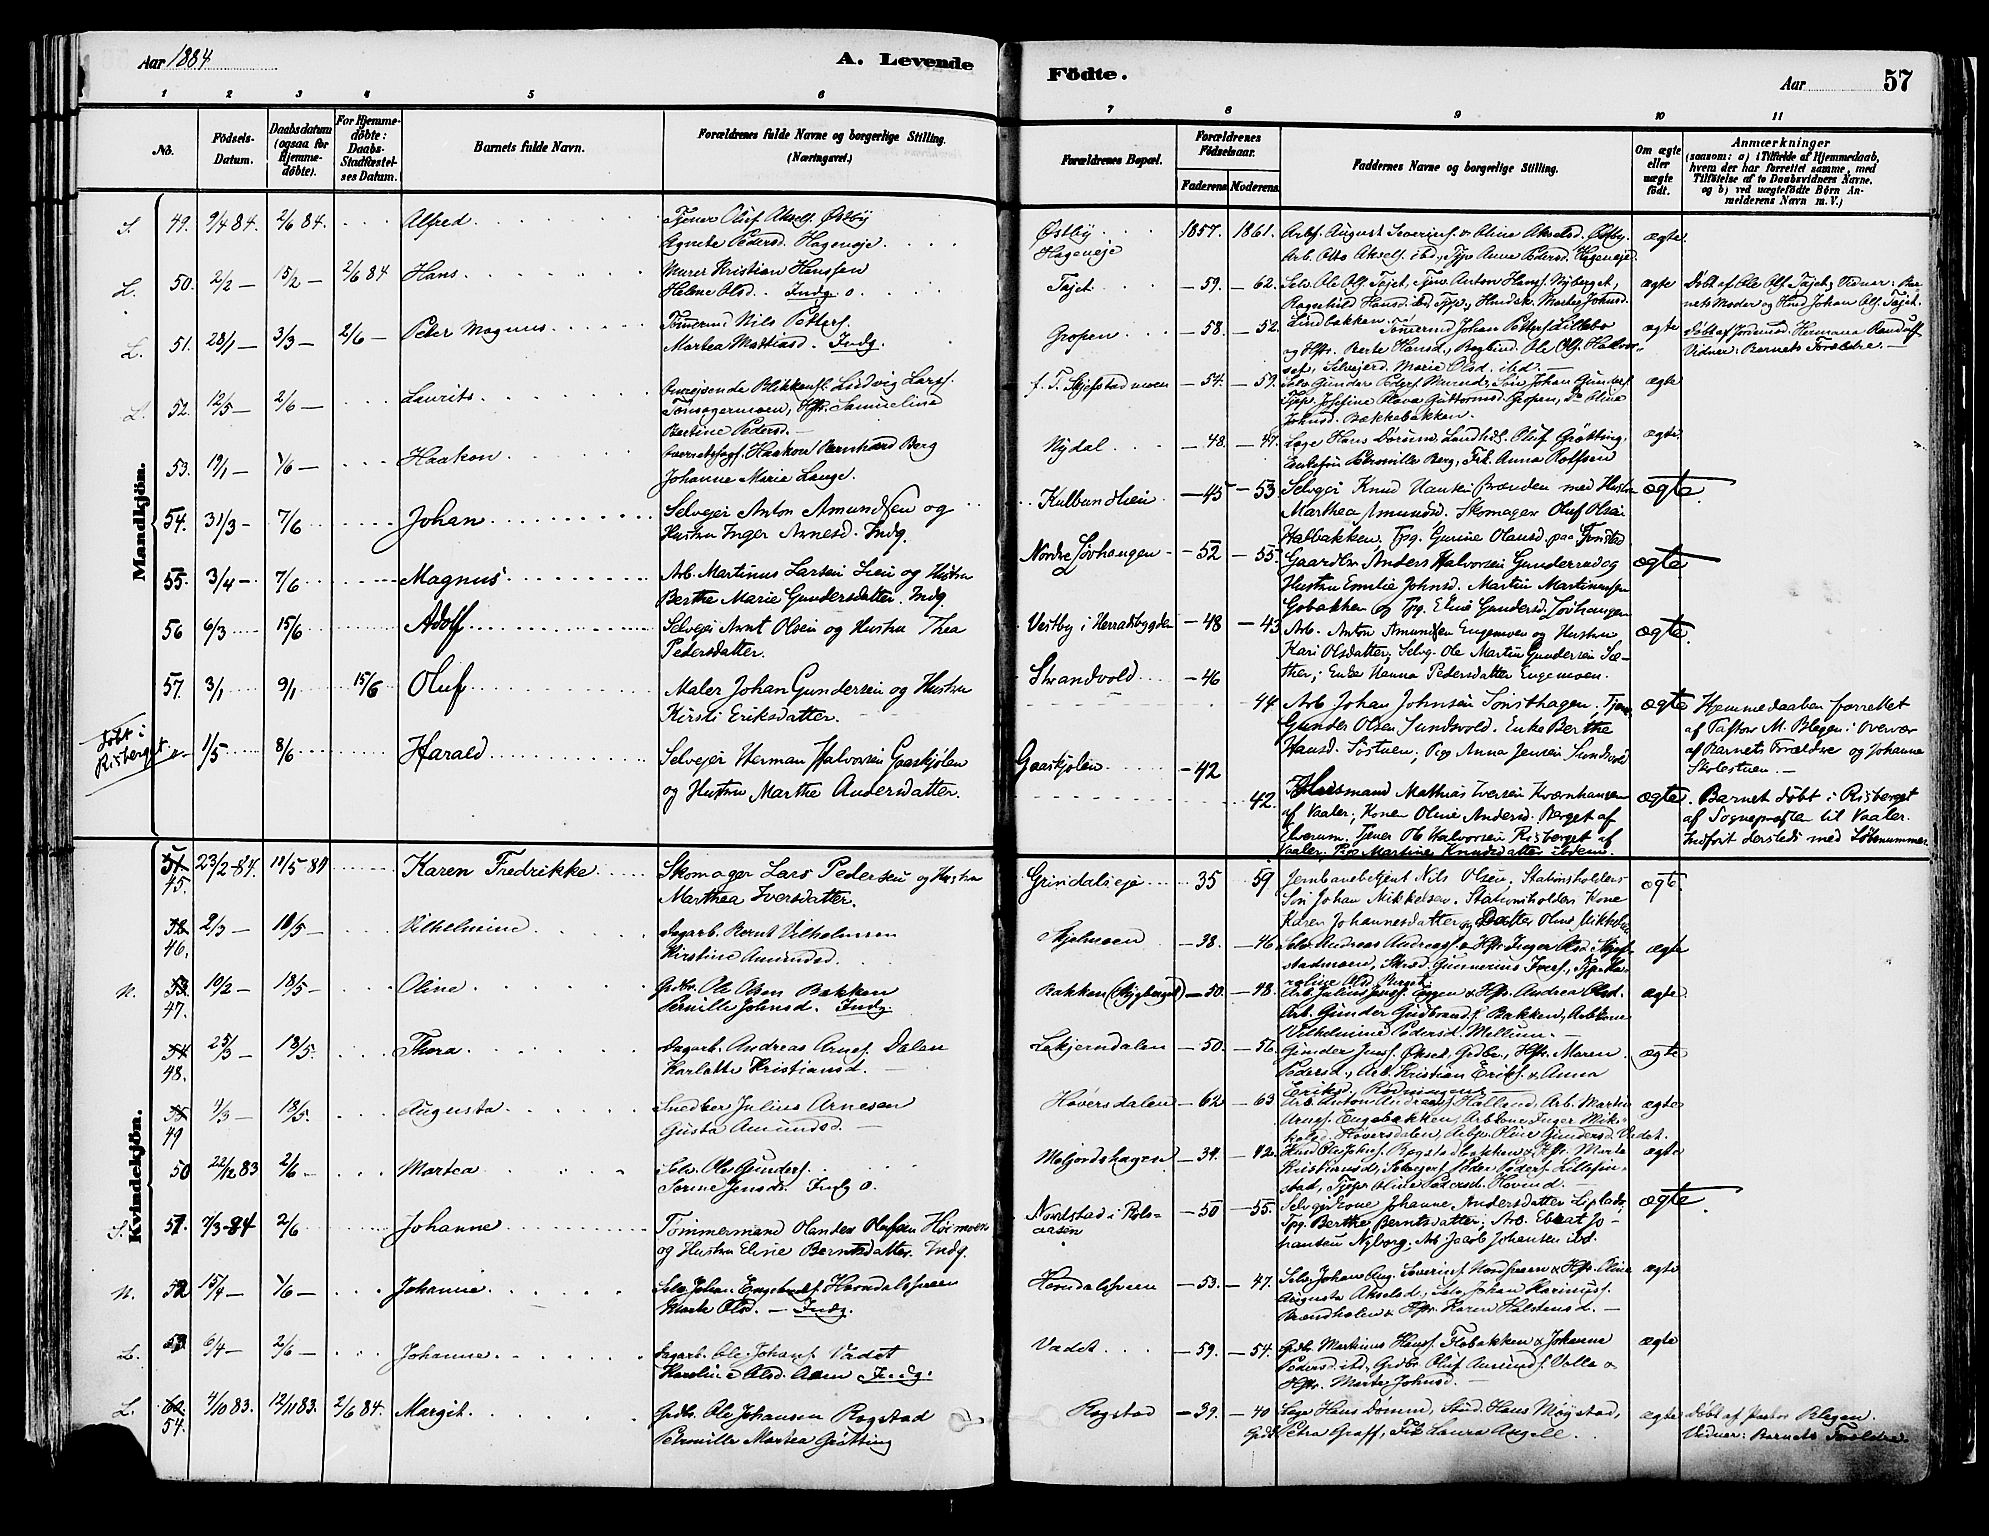 Aar 1884
A. Levende
Födte.
Aar
57
1 2 3 4 5 6 7 8 9 10 11
No.
Födsels-Datum.
Daabsdatum (ogsaa for Hjemme-döbte).
For Hjemme-döbte: Daabs-Stadfæstel-ses Datum.
Barnets fulde Navn.
Forældrenes fulde Navne og borgerlige Stilling. (Næringsvei.)
Forældrenes Bopæl.
Forældrenes Födselsaar.
Faderens. Moderens.
Faddernes Navne og borgerlige Stilling.
Om ægte eller uægte født.
Anmærkninger
(saasom: a) i Tilfælde af Hjemmedaab, hvem der har forrettet samme, med Tilföielse af to Daabsvidners Navne, og b) ved uægtefödte Börn An-melderens Navn m. V.)
Mandkjön.
S. 49. 9/4 84. 2/6 84. Alfred
Tjener Oluf Akself. Østby
Agnete Pedersd. Hageneje
Østby
Hageneje
1857. 1861.
Arbf. August Severinf. & Olina Akselsd. Østby.
Arb. Otto Akself. ibd., Tjp. Anne Pedersd. Hageneje
ægte
L. 50. 2/2 — 15/2 — 2/6 84 Hans
Murer Kristian Hanssen
Helene Olsd. Indg. o.
Tajet — 59. — 62.
Selv. Ole Olf. Tajet, Tjen. Anton Hansf. Nyberget,
Ragnhild Hansd. ibd. Tjp., Husmdsk. Marte Johnsd.
Lindbakken.
ægte
Døbt af Ole Olf. Tajet. Vidner: Bar-
nets Moder og Husd. Johan Olf. Tajet.
L. 51. 28/1 — 3/3 — 2/6 — Peter Magnus
Tömermd. Nils Petterf.
Martea Mattiasd. Indg.
Gropen — 58. — 52.
Tömermd. Johan Petterf. Lillebo
og Hstr. Berte Hansd., Ole Olf. Halvor-
set, Selvejerd. Marie Olsd. ibd. —
ægte
Døbt af Jordmod. Hermana Randulff
Vidner: Barnets Forældre. —
L. 52. 12/5 — 2/6 — Laurits
Omrejsende Blikkensl. Ludvig Larsf.
Tønsagermoen, Hstr. Samueline
Bertine Pedersd. —
f. T. Skjefstadmoen — 54. — 59.
Selv. Gunder Pederf. Murud, Søn Johan Gunderf.
Tjp. Josefine Olava Guttormsd. Gropen, Olina
Johnsd. Bakkebakken.
ægte
53. 19/1 — 1/6 — Haakon
Haakon Bernhard Borg
Johanne Marie Lange.
Nydal — 48. — 47.
Læge Hans Dørum, Landhdl. Oluf Grøtting,
Enkefru Petronille Berg, Frk. Anna Rolfsen
ægte
54. 31/3 — 7/6 Johan
Selvejer Anton Amundsen og
Hustru Inger Arnesd. Indg.
Kulbundlien — 45 — 53
Selvejer Knud Hansen Brænden med Hustru
Marthea Amundsd. Skomager Oluf Olsen
Habbakken. Tpg. Gurine Olausd. paa Fonstad
ægte
55. 3/4 — 7/6 Magnus
Arb. Martinus Larsen Lien og Hustru
Berthe Marie Gundersdatter. Indg.
Nordre Løvhaugen — 52 — 55
Gaardbr. Anders Halvorsen Gunderrud og
Hustru Emilie Johnsd. Martin Martinussen
Gobakken og Tpg. Eline Gundersd. Løvhaugen
ægte
56 6/3 15/6 Adolf
Selvejer Arnt Olsen og Hustru Thea
Pedersdatter.
Vestby i Herradsbygden — 48 — 43
Arb. Anton Amundsen Engemoen og Hustru
Kari Olsdatter, Selvg. Ole Martin Gundersen Sæ-
ther, Enke Hanna Pedersdatter Engemoen.
ægte
57. 3/1 9/1 15/6 Oluf
Maler Johan Gundersen og Hustru
Kirsti Eriksdatter.
Strandvold — 46 44
Arb. Johan Johnsen Sønsthagen, Tjen.
Gunder Olsen Sundvold. Enke Berthe
Hansd. Sostuen; Pge Anna Jensen Sundvold
ægte
Hjemmedaaben forrettet
af Pastor M. Blegen i Overvær
af Barnets Forældre og Johanne
Skolestuen. —
Døbt i
Risberget
1/5 8/6 Harald
Selvejer Herman Halvorsen Gaaskjølen
og Hustru Marthe Andersdatter.
Gaaskjølen — 42 42.
Husmand Mathias Iversen Kværnhaugen
af Vaaler, Kone Oline Andersd. Berget af
Elverum. Tjener Ole Halvorsen Risberget af
Vaaler. Pge Martine Knudsdatter ibdem.
ægte
Barnet døbt i Risberget
af Sognepresten til Vaaler.
Indført dersteds med Løbenummer
Kvindekjön.
45. 23/2-84. 11/5-84 Karen Fredrikke
Skomager Lars Pedersen og Hustru
Marthea Iversdatter.
Grindalseje 35 59
Jernbanebetjent Nils Olsen, Stationsholders
Søn Johan Mikkelsen. Stationsholders Kone
Karen Johannesdatter og Datter Oline Mikkelsen
ægte
46. 2/3 — 18/5 — Vilhelmine
Dagarb. Bernt Vilhelmsen
Kirstine Amundsd.
Skjelmoen — 38. — 46
Selv. Andreas Andreasf. & Hstr. Inger Olsd. Skjef-
stadmoen, Skrd. Gunnerius Iverf., Tjp. Ka-
roline Olsd. Berget
ægte
N. 47. 10/2 — 18/5 — Oline
Grdbr. Ole Olsen Bakken
Pernille Johnsd. Indg.
Bakken (Nygberget) — 50. — 48.
Arb. Julius Jensf. Eggen & Hstr. Andrea Olsd.
Arb. Gunder Gudbrandf. Bakken, Arbkone
Vilhelmine Pedersd. Mellum. —
ægte
48. 25/3 — 18/5. Thora
Dagarb. Andreas Arnef. Dalen
Karlotte Kristiansd. —
Lekjerndalen — 50. — 56.
Gunder Jensf. Økset, Grdbr., Hstr. Maren
Pedersd., Arb. Kristian Erikf. & Anna
Eriksd. Rødningen
ægte
49 4/3 — 18/5. Augusta
Snedker Julius Arnesen
Gusta Amundsd. —
Høversdalen — 62 — 63
Arb. Anton Andreasf. Hallund, Arb. Martin
Arnef. Engebakken, Arbkone Inger Mik-
kelsd. Hoversdalen, Arbp. Oline Gundersd. Vadet.
ægte
50 22/12 83 2/6 — Martea
Selv. Ole Gunderf.
Sørine Jensd. Indg. o.
Meljordshagen — 34. — 42.
Husd. Ole Johsf. Rogstadbakken & Hstr. Marte
Kristiansd., Selvejerf. Peder Pederf. Lillefin-
stad, Tjp. Oline Pedersd. Hovind. —
ægte
S. 51. 7/3-84 2/6 Johanne
Tømmermand Olandes Olufsen Hørmoen
og Hustru Eline Berntsdatter. Indg.
Nordstad i Rols-
aasen
— 50 — 55.
Selvejerkone Johanne Andersdatter Liplads,
Tpg. Berthe Berntsdatter; Arb. Ebert Jo-
hansen Nyborg, Arb. Jacob Johansen ibd.
ægte.
N. 52 15/4 — 1/6 — Johanne
Selv. Johan Engebretf. Horndalsveen
Marte Olsd. — Indg.
Horndalsveen — 53. — 47.
Selv. Johan Aug. Severinf. Nordsveen & Hstr. Olina
Augusta Akselsd., Selv. Johan Karinusf.
Brændholen & Hstr. Karen Halstensd. —
ægte
L. 53 6/4 — 2/6 — Johanne
Dagarb. Ole Johansf. Vadet
Karoline Olsd. Aasen Indg.
Vadet — 59. — 54.
Grdbr. Martinus Hansf. Flobakken & Johanne
Pedersd. ibd., Grdbr. Oluf Amundf. Velta &
Hstr. Marte Johnsd. —
ægte
L. 54. 4/10 83. 12/11 83. 2/6 84. Margit
Grdbr. Ole Johansen Rogstad
Petronille Martea Grøtting
Rogstad — 39. — 40
Læge Hans Dørum, Stud. Hans Møystad,
Petra Graff, Frk. Laura Angell.
ægte
Døbt af Pastor Blegen.
Vidner: Barnets Forældre.